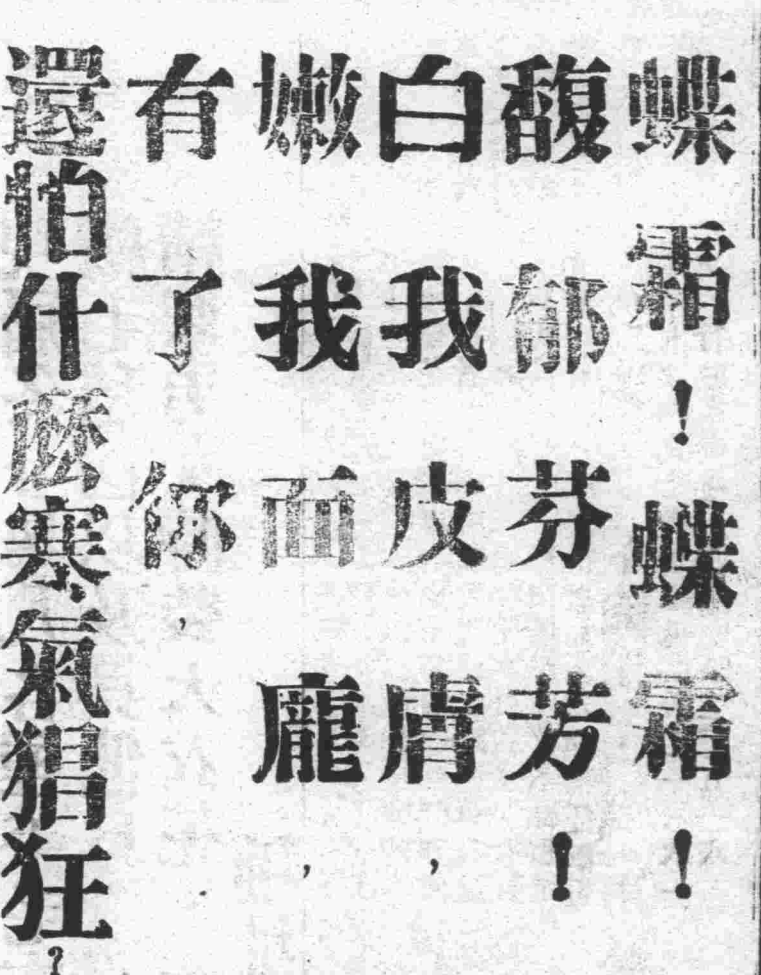 蝶霜！蝶霜！
馥郁芬芳！
白我皮膚，
嫩我面龐，
有了你，
還怕什麽寒氣猖狂？